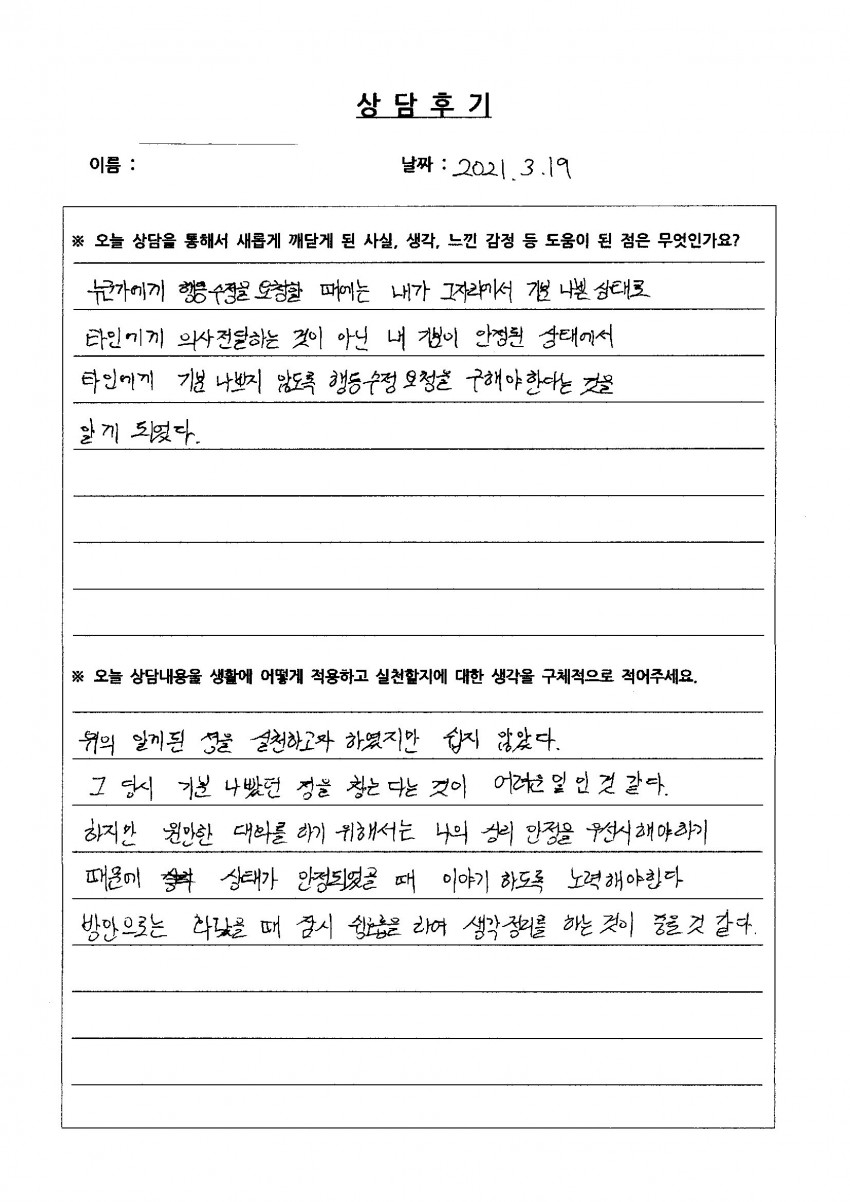 상 담 후 기
이름 :
날짜 : 2021. 3. 19
※ 오늘 상담을 통해서 새롭게 깨닫게 된 사실, 생각, 느낀 감정 등 도움이 된 점은 무엇인가요?
누군가에게 행동수정을 요청할 때에는 내가 그자리에서 기분 나쁜 상태로
타인에게 의사전달하는 것이 아닌 내 기분이 안정된 상태에서
타인에게 기분 나쁘지 않도록 행동수정 요청을 구해야한다는 것을
알게 되었다.
※ 오늘 상담내용을 생활에 어떻게 적용하고 실천할지에 대한 생각을 구체적으로 적어주세요.
위의 알게된 점을 실천하고자 하였지만 쉽지 않았다.
그 당시 기분 나빴던 점을 참는 다는 것이 어려운 일 인 것 같다.
하지만 원만한 대화를 하기 위해서는 나의 심리 안정을 우선시 해야하기
때문에 상태가 안정되었을 때 이야기 하도록 노력해야한다
방안으로는 화났을 때 잠시 심호흡을 하여 생각정리를 하는 것이 좋을 것 같다.